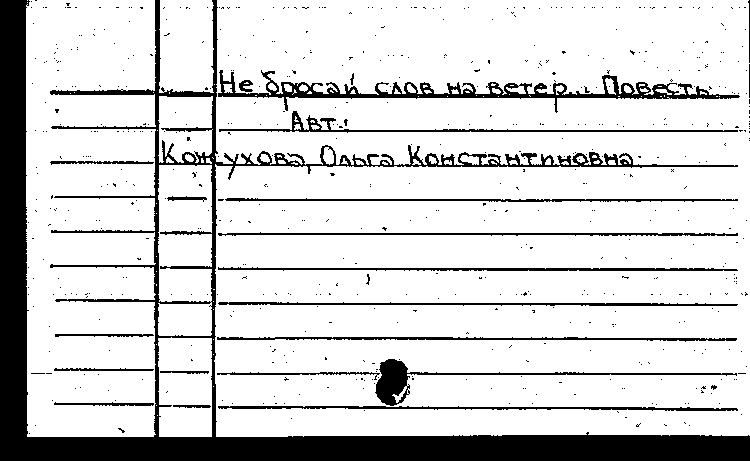 Не бросай слов на ветер... Повесть
Авт.:
Кожухова, Ольга Константиновна.